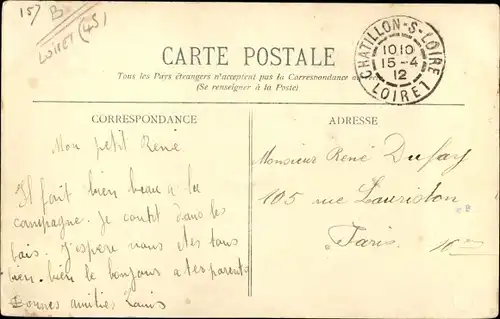 157 B
LOIRET (45)
CARTE POSTALE
Tous les Pays étrangers n'acceptent pas la Correspondance au
(Se renseigner à la Poste)
CHATILLON-S-LOIRE
1010
15-4
12
LOIRET
CORRESPONDANCE
ADRESSE
Mon petit René
Il fait bien beau a la
campagne. Je dans les
bois. J'espere vous etes tous
bien. bien le bonjour a tes parents
Bonnes amities Louis
Monsieur René Dufay
105 rue Lauriston
Paris. 16